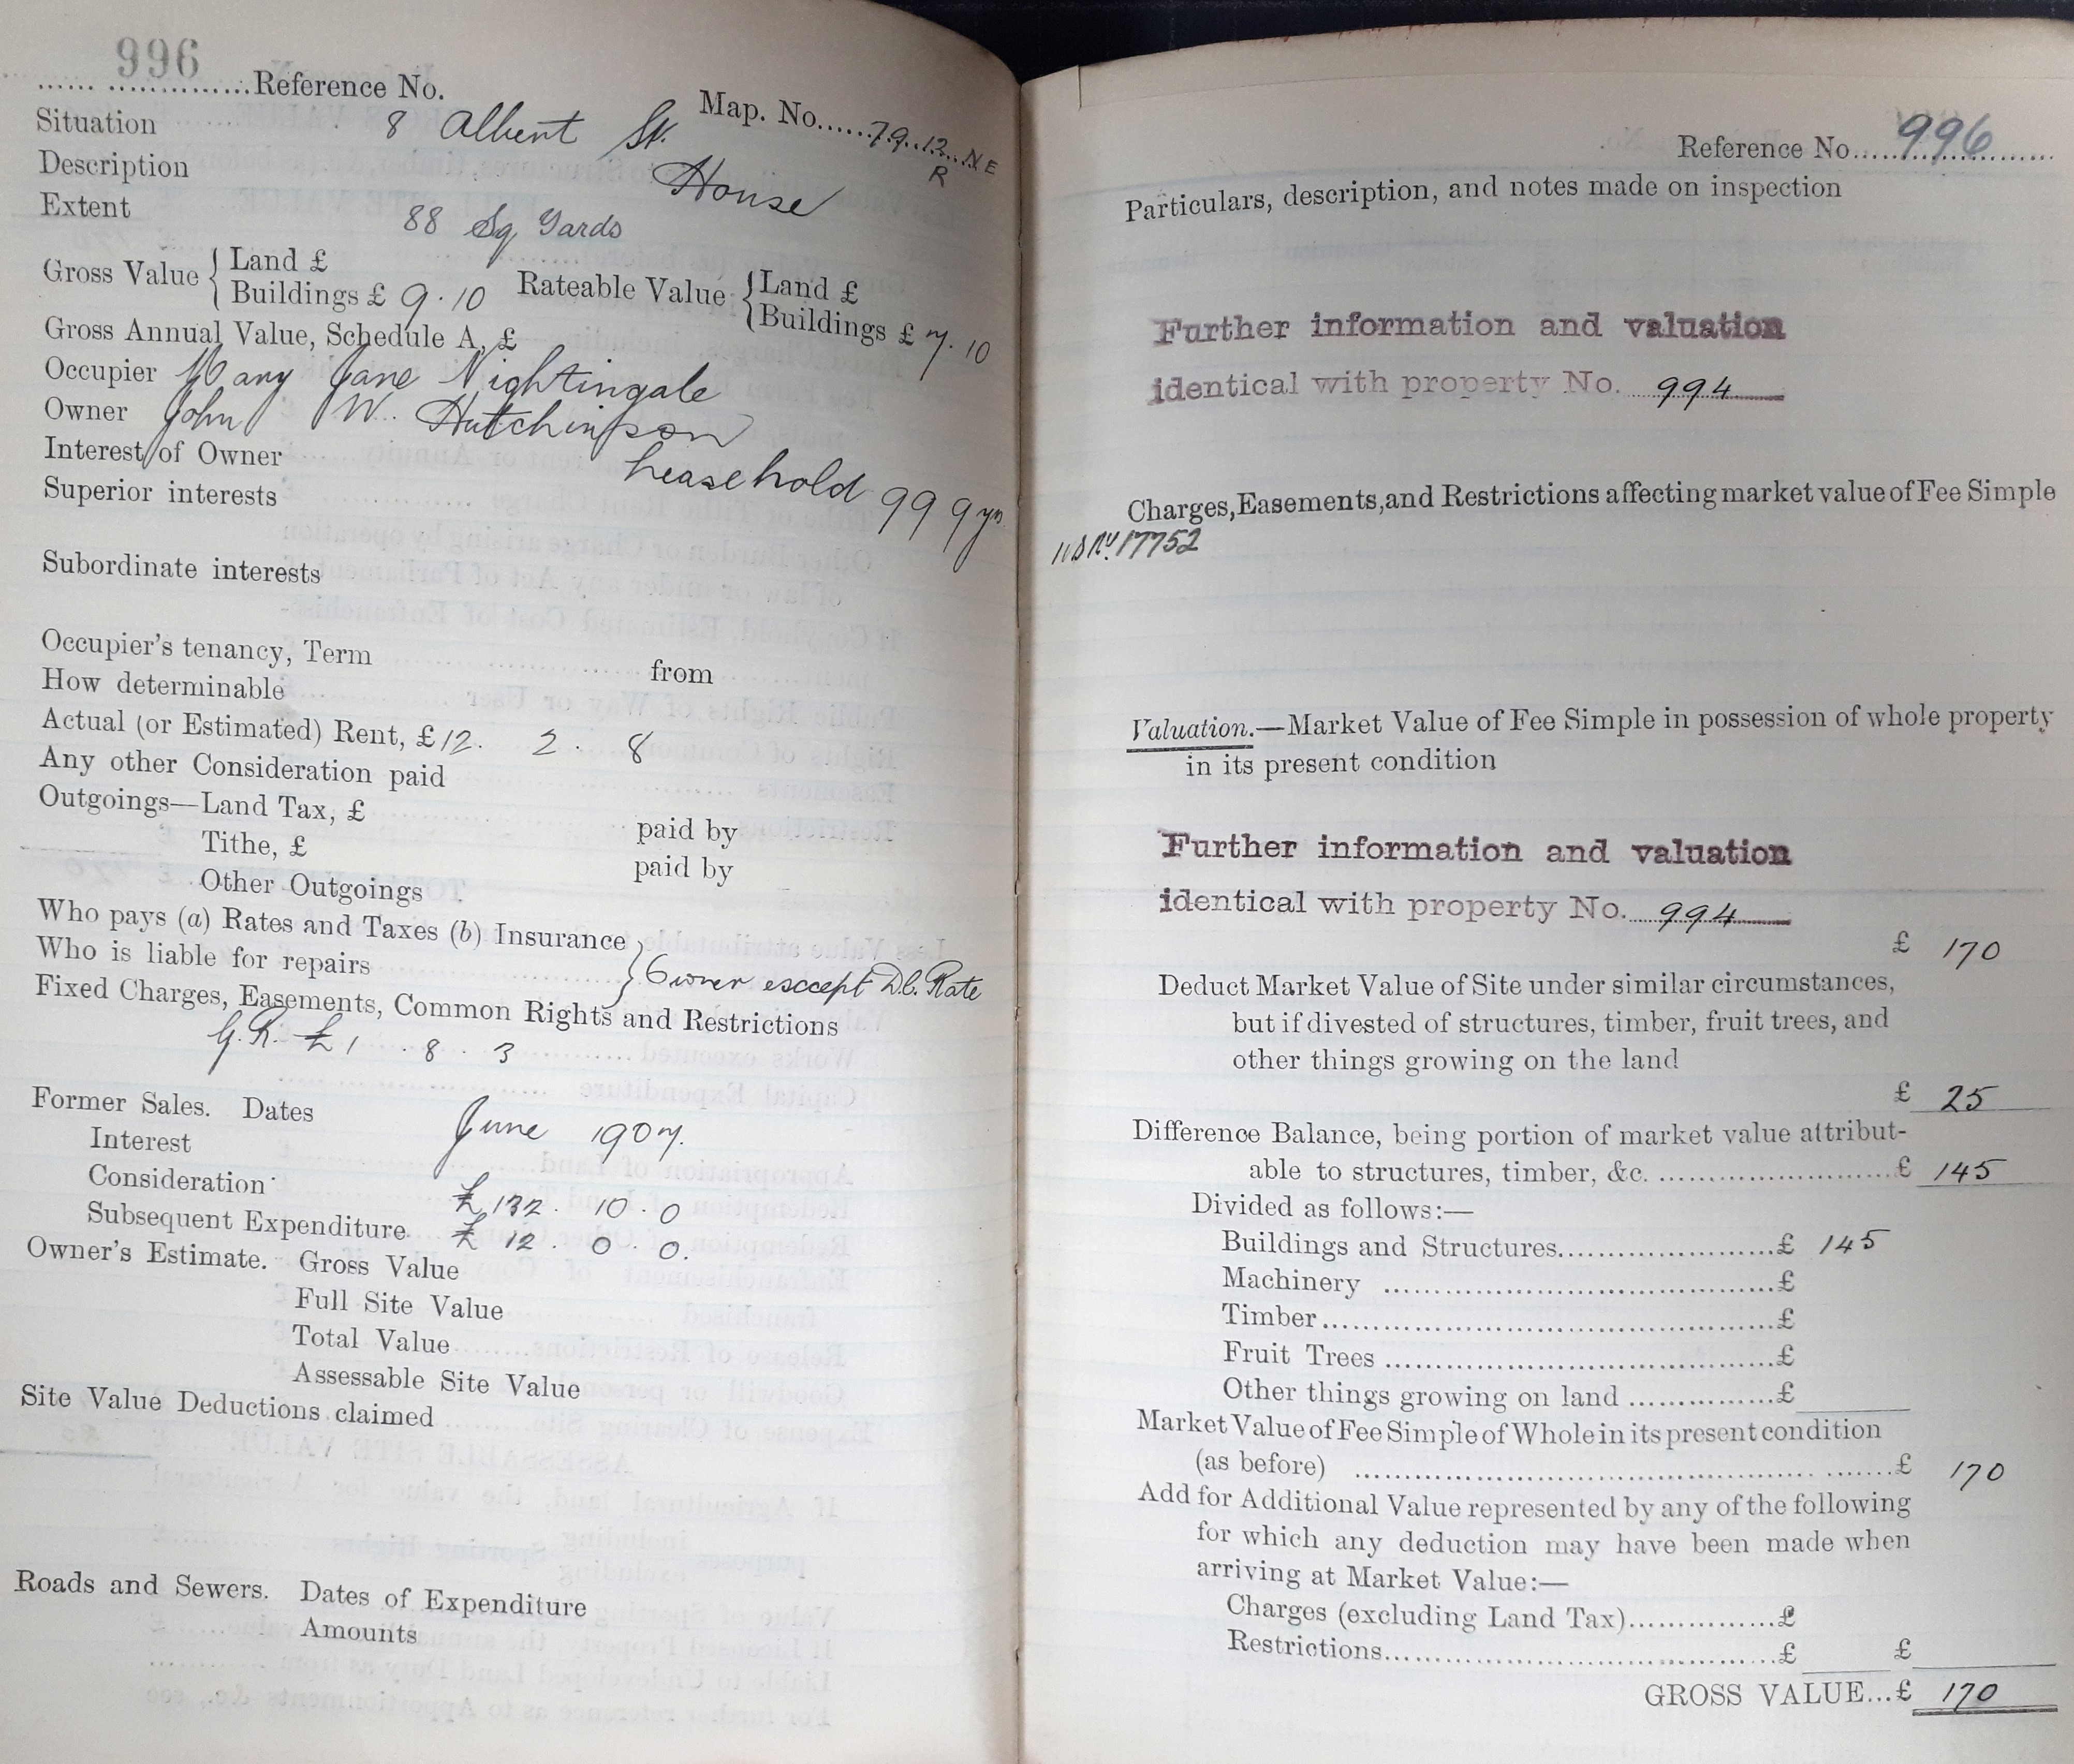 996
Reference No.
Map. No. 79.12. NE
R
Situation 8 Albert St.
Description House
Extent 88 Sq Yards
Gross Value { Land £
Buildings £ 9.10
Rateable Value { Land £
Buildings £ 7.10
Gross Annual Value, Schedule A, £
Occupier Mary Jane Nightingale
Owner John W. Hutchinson
Interest of Owner Leasehold 999 yrs
Superior interests
Subordinate interests
Occupier's tenancy, Term from
How determinable
Actual (or Estimated) Rent, £ 12. 2. 8
Any other Consideration paid
Outgoings—Land Tax, £ paid by
Tithe, £ paid by
Other Outgoings
Who pays (a) Rates and Taxes (b) Insurance
Who is liable for repairs } Owner except D.C. Rate
Fixed Charges, Easements, Common Rights and Restrictions
G.R. £1.8.3
Former Sales. Dates June 1907.
Interest
Consideration £132.10.0
Subsequent Expenditure £12.0.0.
Owner's Estimate. Gross Value
Full Site Value
Total Value
Assessable Site Value
Site Value Deductions claimed
Roads and Sewers. Dates of Expenditure
Amounts
Reference No. 996
Particulars, description, and notes made on inspection
Further information and valuation
identical with property No. 994
Charges, Easements, and Restrictions affecting market value of Fee Simple
17752
Valuation.—Market Value of Fee Simple in possession of whole property
in its present condition
Further information and valuation
identical with property No. 994
£ 170
Deduct Market Value of Site under similar circumstances,
but if divested of structures, timber, fruit trees, and
other things growing on the land
£ 25
Difference Balance, being portion of market value attribut-
able to structures, timber, &c. £ 145
Divided as follows:—
Buildings and Structures £ 145
Machinery £
Timber £
Fruit Trees £
Other things growing on land £
Market Value of Fee Simple of Whole in its present condition
(as before) £ 170
Add for Additional Value represented by any of the following
for which any deduction may have been made when
arriving at Market Value:—
Charges (excluding Land Tax) £
Restrictions £ £
GROSS VALUE...£ 170